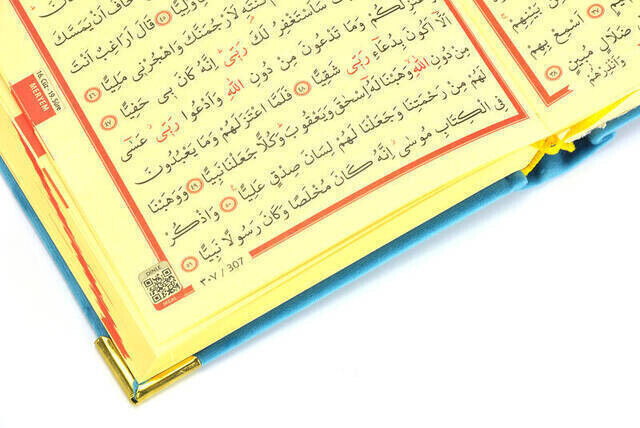 بَيْنِهِمْ
٣٧ اَسْمِعْ بِهِمْ
ضَلَالٍ مُبِينٍ ٣٨
وَاَنْذِرْهُمْ
اَخَافُ اَنْ يَمَسَّكَ
وَلِيًّا ٤٥ قَالَ اَرَاغِبٌ اَنْتَ
تَنْتَهِ لَاَرْجُمَنَّكَ وَاهْجُرْنِى مَلِيًّا ٤٦
سَاَسْتَغْفِرُ لَكَ رَبِّى اِنَّهُ كَانَ بِى حَفِيًّا ٤٧
وَمَا تَدْعُونَ مِنْ دُونِ اللّٰهِ وَاَدْعُوا رَبِّى عَسٰى
اَلَّا اَكُونَ بِدُعَاءِ رَبِّى شَقِيًّا ٤٨ فَلَمَّا اعْتَزَلَهُمْ وَمَا يَعْبُدُونَ
مِنْ دُونِ اللّٰهِ وَهَبْنَا لَهُ اِسْحٰقَ وَيَعْقُوبَ وَكُلًّا جَعَلْنَا نَبِيًّا ٤٩ وَوَهَبْنَا
لَهُمْ مِنْ رَحْمَتِنَا وَجَعَلْنَا لَهُمْ لِسَانَ صِدْقٍ عَلِيًّا ٥٠ وَاذْكُرْ
فِى الْكِتَابِ مُوسٰى اِنَّهُ كَانَ مُخْلَصًا وَكَانَ رَسُولًا نَبِيًّا ٥١
16.Cüz - 19.Sûre
MERYEM
DİNLE
٣٠٧ / 307